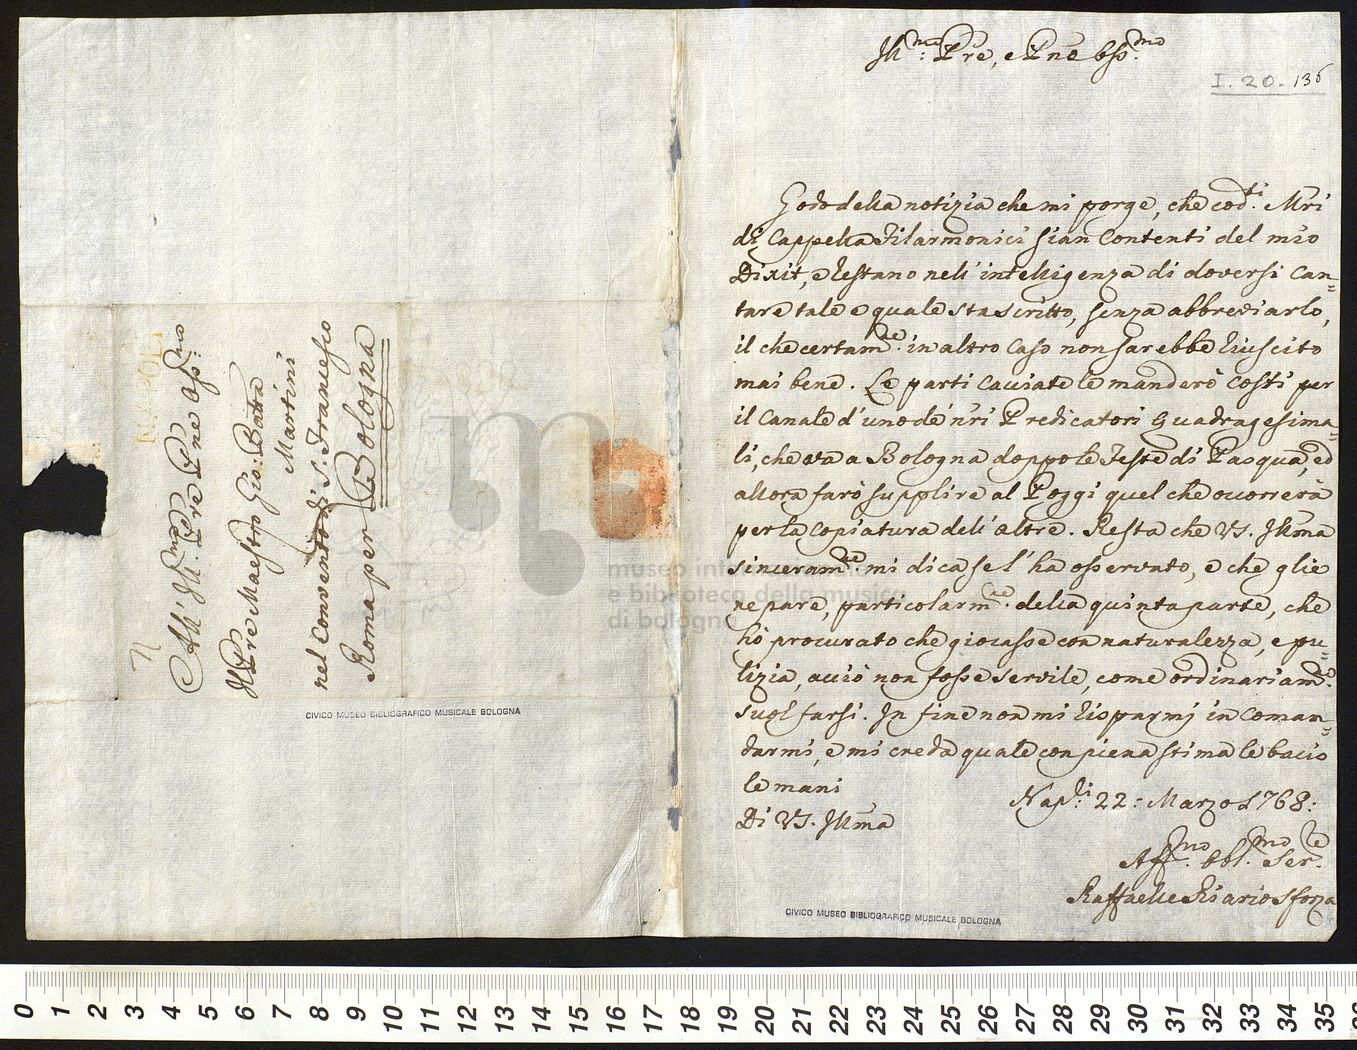 Ill:mo Pre, e Pne Oss:mo
I. 20. 136
Godo della notizia che mi porge, che cod:ti Mri
di Cappella Filarmonici sian contenti del mio
Dixit, e restano nell'intelligenza di doversi can=
tare tale e quale sta scritto, senza abbreviarlo,
il che certam:te in altro caso non sarebbe riuscito
mai bene. Le parti cacciate le manderò costì per
il canale d'uno de' nri Predicatori Quadragesima=
li, che va a Bologna doppo le Feste di Pasqua, ed
allora farò supplire al Poggi quel che occorrerà
per la copiatura dell'altre. Resta che VS. Illma
sinceram:te mi dica se l'ha osservato, e che glie
ne pare, particolarm:te della quinta parte, che
hò procurato che giocasse con naturalezza, e pu=
lizia, acciò non fosse servile, come ordinariam:te
suol farsi. In fine non mi risparmj in coman=
darmi, e mi creda quale con piena stima le bacio
le mani
Di VS. Illma
Nap:li 22: Marzo 1768:
Aff:mo Obl:mo Ser:re
Raffaele Riario Sforza
CIVICO MUSEO BIBLIOGRAFICO MUSICALE BOLOGNA
All' Ill:mo Pre Pne Oss:mo
Il Pre Maestro Gio: Batta
Martini
nel Convento di S. Francesco
Roma per Bologna
CIVICO MUSEO BIBLIOGRAFICO MUSICALE BOLOGNA
museo internazionale
e biblioteca della musica
di bologna
0 1 2 3 4 5 6 7 8 9 10 11 12 13 14 15 16 17 18 19 20 21 22 23 24 25 26 27 28 29 30 31 32 33 34 35